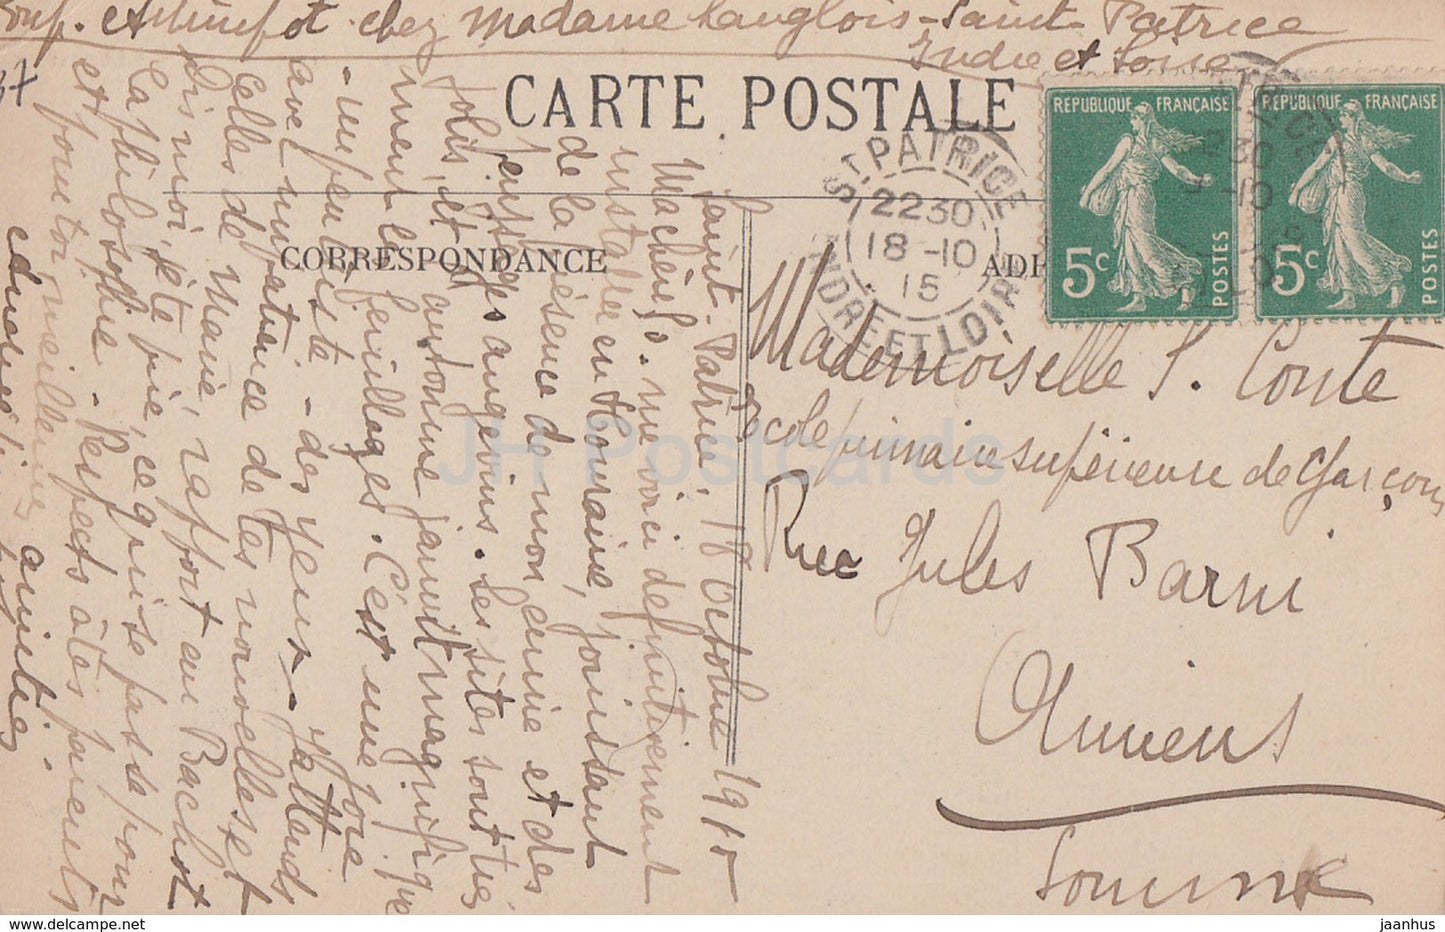 chez Madame Langlois - Saint-Patrice
Indre et Loire
37
CARTE POSTALE
CORRESPONDANCE
RÉPUBLIQUE FRANÇAISE
5c
POSTES
RÉPUBLIQUE FRANÇAISE
5c
POSTES
ST PATRICE
22 30
18 -10
15
INDRE ET LOIRE
Saint-Patrice. 18 Octobre 1915
me voici définitivement
installée en Touraine, jouissant
de la présence de mon amie et des
paysages angevins. Les sites sont très
jolis et l'automne jaunit magnifique
ment les feuillages. C'est une joie
un peu triste - des yeux - J'attends
avec impatience de tes nouvelles et
celles de Marie,
Dis moi, s'te plie,
la philosophie - Respects à tes parents
et pour toi meilleures amitiés
Mademoiselle S. Conte
École primaire supérieure de Garçons
Rue Jules Barni
Amiens
Somme
JH Postcards
www.delcampe.net
jaanhus